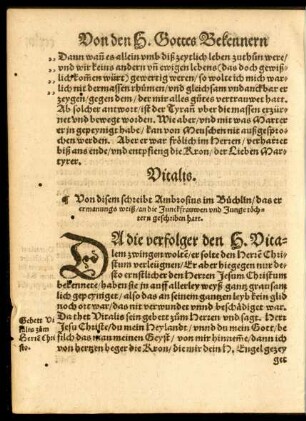 Von den H. Gottes Bekennern
Dann wañ es allein vmb diß zeytlich leben zuthůn were/
vnd wir keins andern vñ ewigen lebens (das doch gewiß-
lich kom̃en würt) gewertig weren/ so wolte ich mich war-
lich nit dermassen rhümen/ vnd gleichsam vndanckbar er
zeygen/ gegen dem/ der mir alles gůtes vertrauwet hatt.
Ab solcher antwort/ ist der Tyrañ vber die massen erzür-
net vnd bewegt worden. Wie aber/ vnd mit was Marter
er jn gepeynigt habe/ kan von Menschen nit außgespro-
chen werden. Aber er war frölich im Herren/ verharret
biß ans ende/ vnd entpfieng die Kron/ der Lieben Mar-
tyrer.
Vitalis.
¶ Von disem schreibt Ambrosius im Büchlin/ das er
ermanungs weiß/ an die Junckfrauwen vnd Junge töch-
tern geschriben hatt.
DA die verfolger den H. Vita-
lem zwingen woltē/ er solte den Herrē Chri-
stum verleügnen/ Er aber hiegegen nur de-
sto ernstlicher den Herren Jesum Christum
bekennete/ haben sie jn auff allerley weyß gantz grausam
lich gepeyniget/ also das an seinem gantzen leyb kein glid
noch ort war/ das nit verwunder vnnd beschädiget war.
Da thet Vitalis sein gebett zům Herren vnd sagt. Herr
Jesu Christe/ du mein Heylandt/ vnnd du mein Gott/ be-
filch das man meinen Geyst/ von mir hinneme/ dann ich
von hertzen beger die Kron/ die mir dein H. Engel gezey
get
Gebett Vi
talis zům
Herrē Chri
sto.